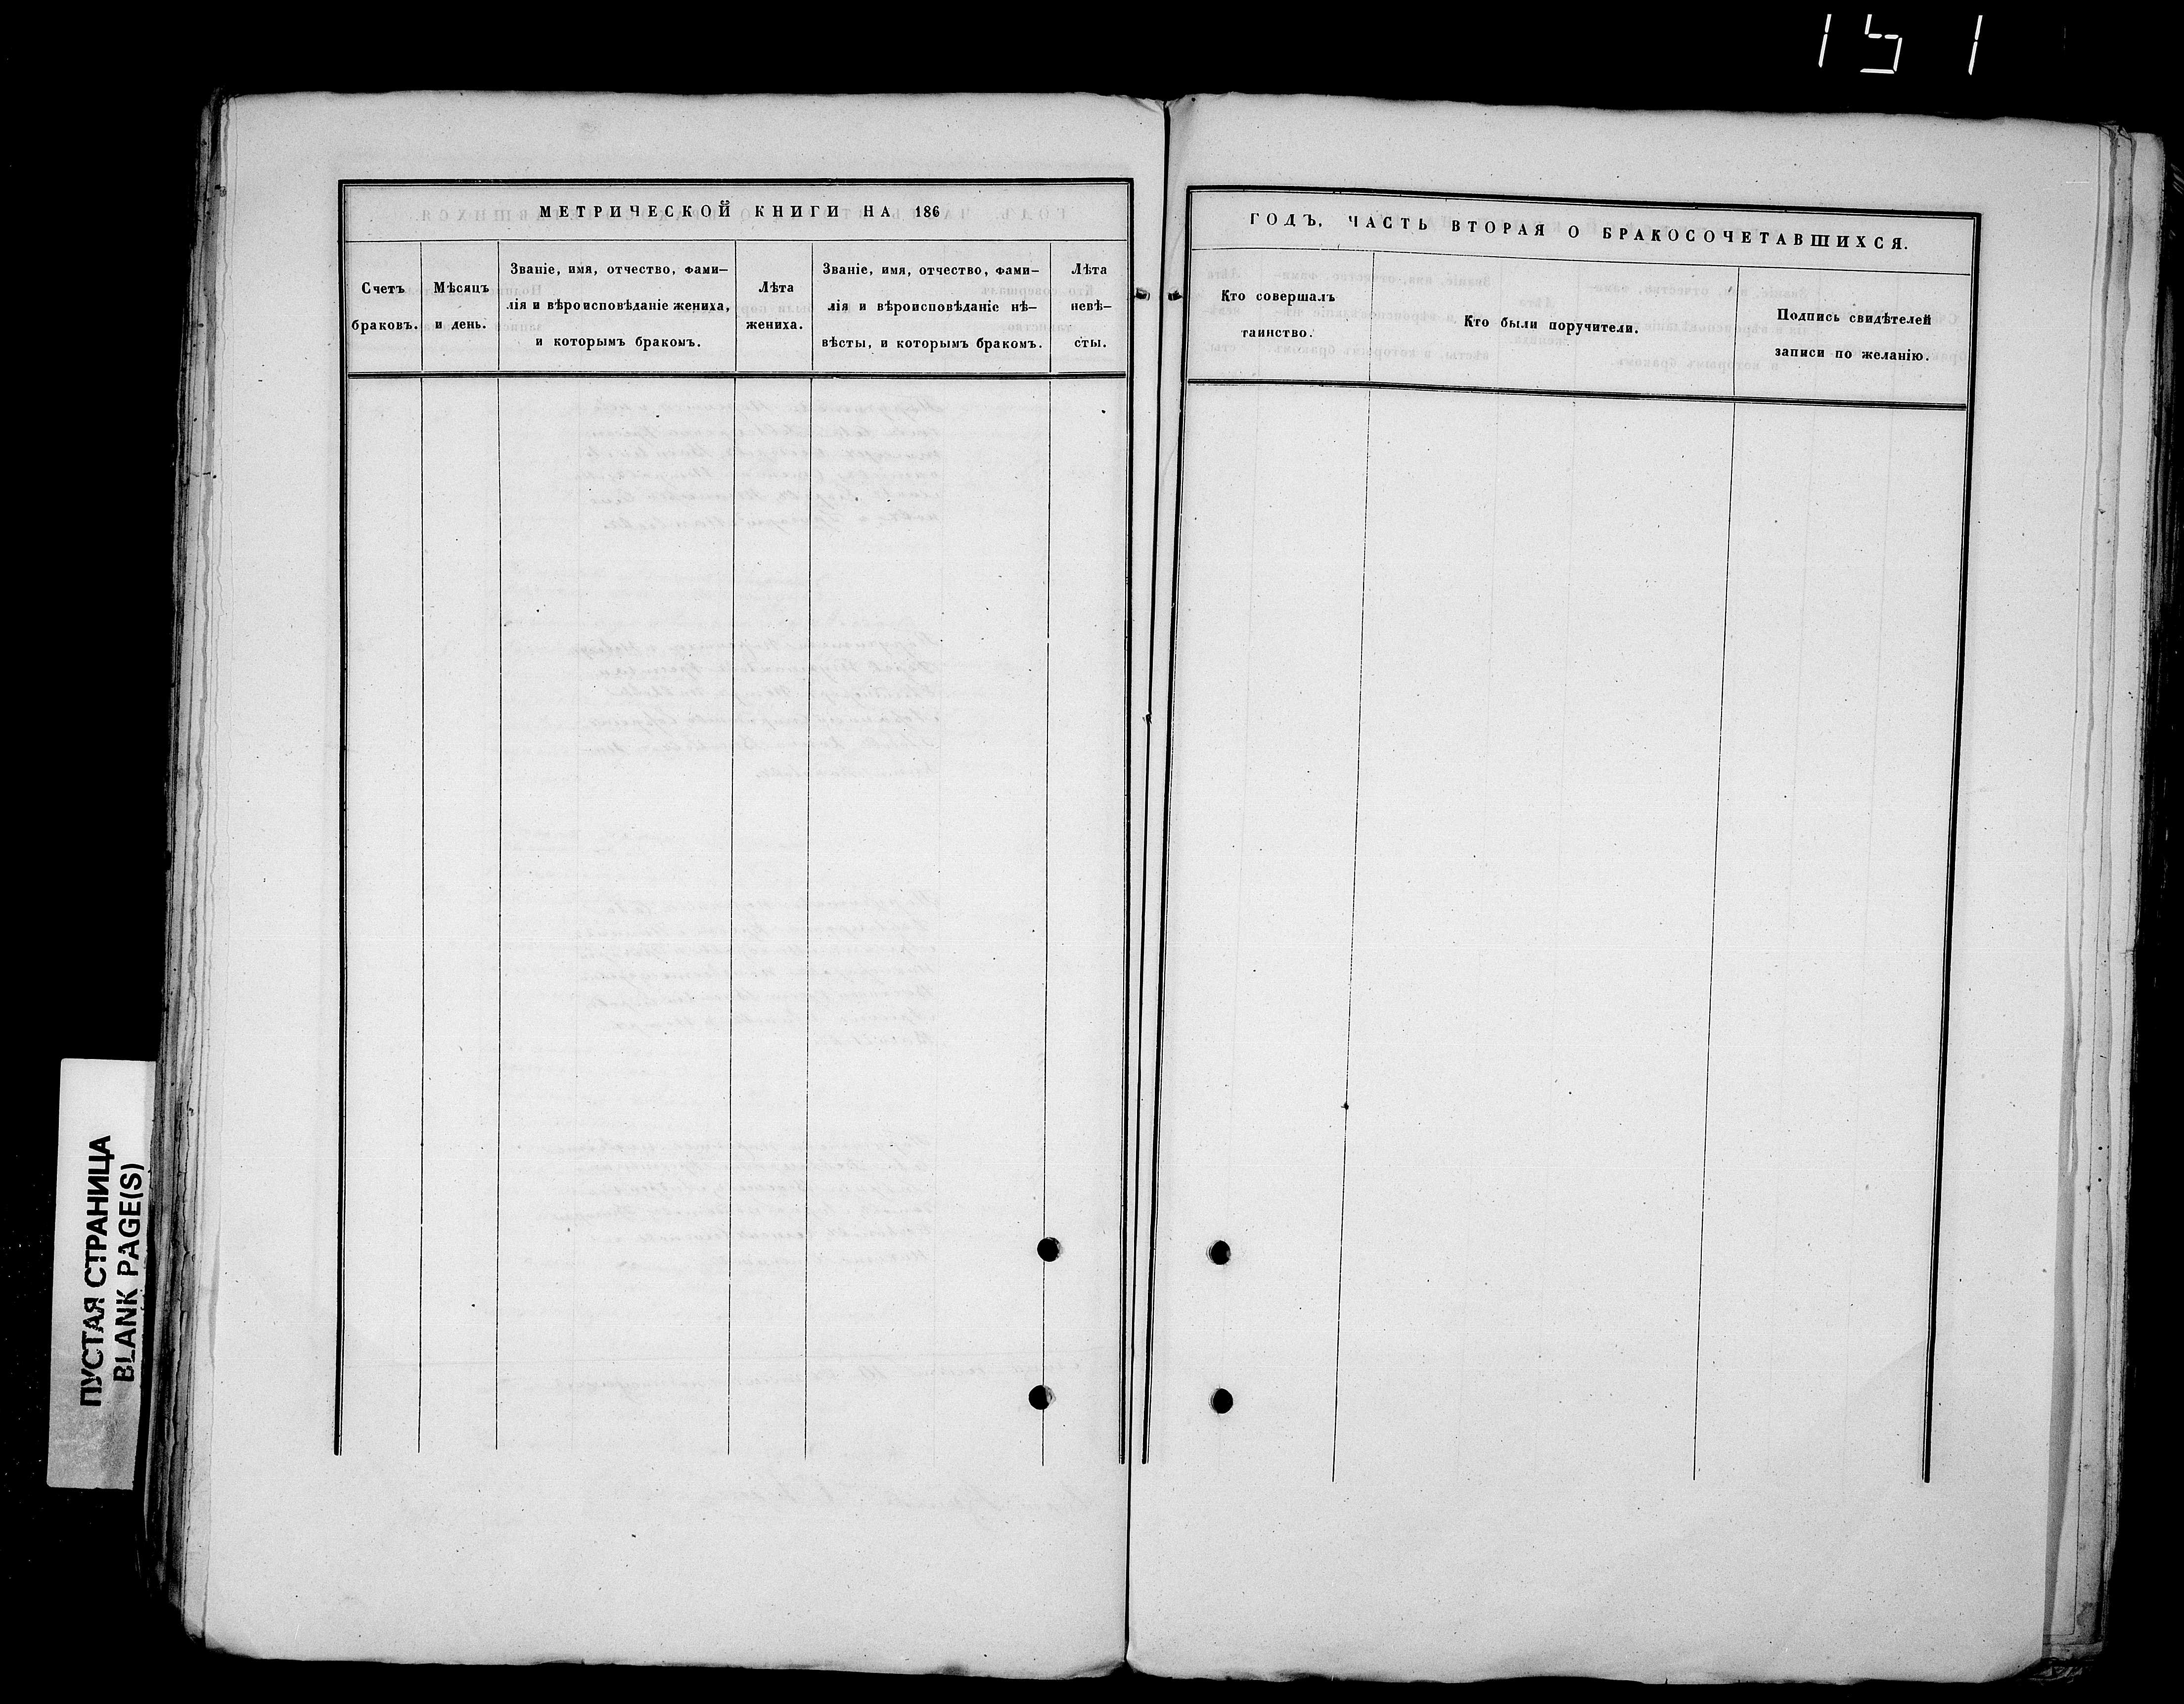 151
МЕТРИЧЕСКОЙ КНИГИ НА 186
Счетъ
браковъ.
Мѣсяцъ
и день.
Званіе, имя, отчество, фами-
лія и вѣроисповѣданіе жениха,
и которымъ бракомъ.
Лѣта
жениха.
Званіе, имя, отчество, фами-
лія и вѣроисповѣданіе нѣ-
вѣсты, и которымъ бракомъ.
Лѣта
невѣ-
сты.
ГОДЪ, ЧАСТЬ ВТОРАЯ О БРАКОСОЧЕТАВШИХСЯ.
Кто совершалъ
таинство.
Кто были поручители.
Подпись свидѣтелей
записи по желанію.
ПУСТАЯ СТРАНИЦА
BLANK PAGE(S)